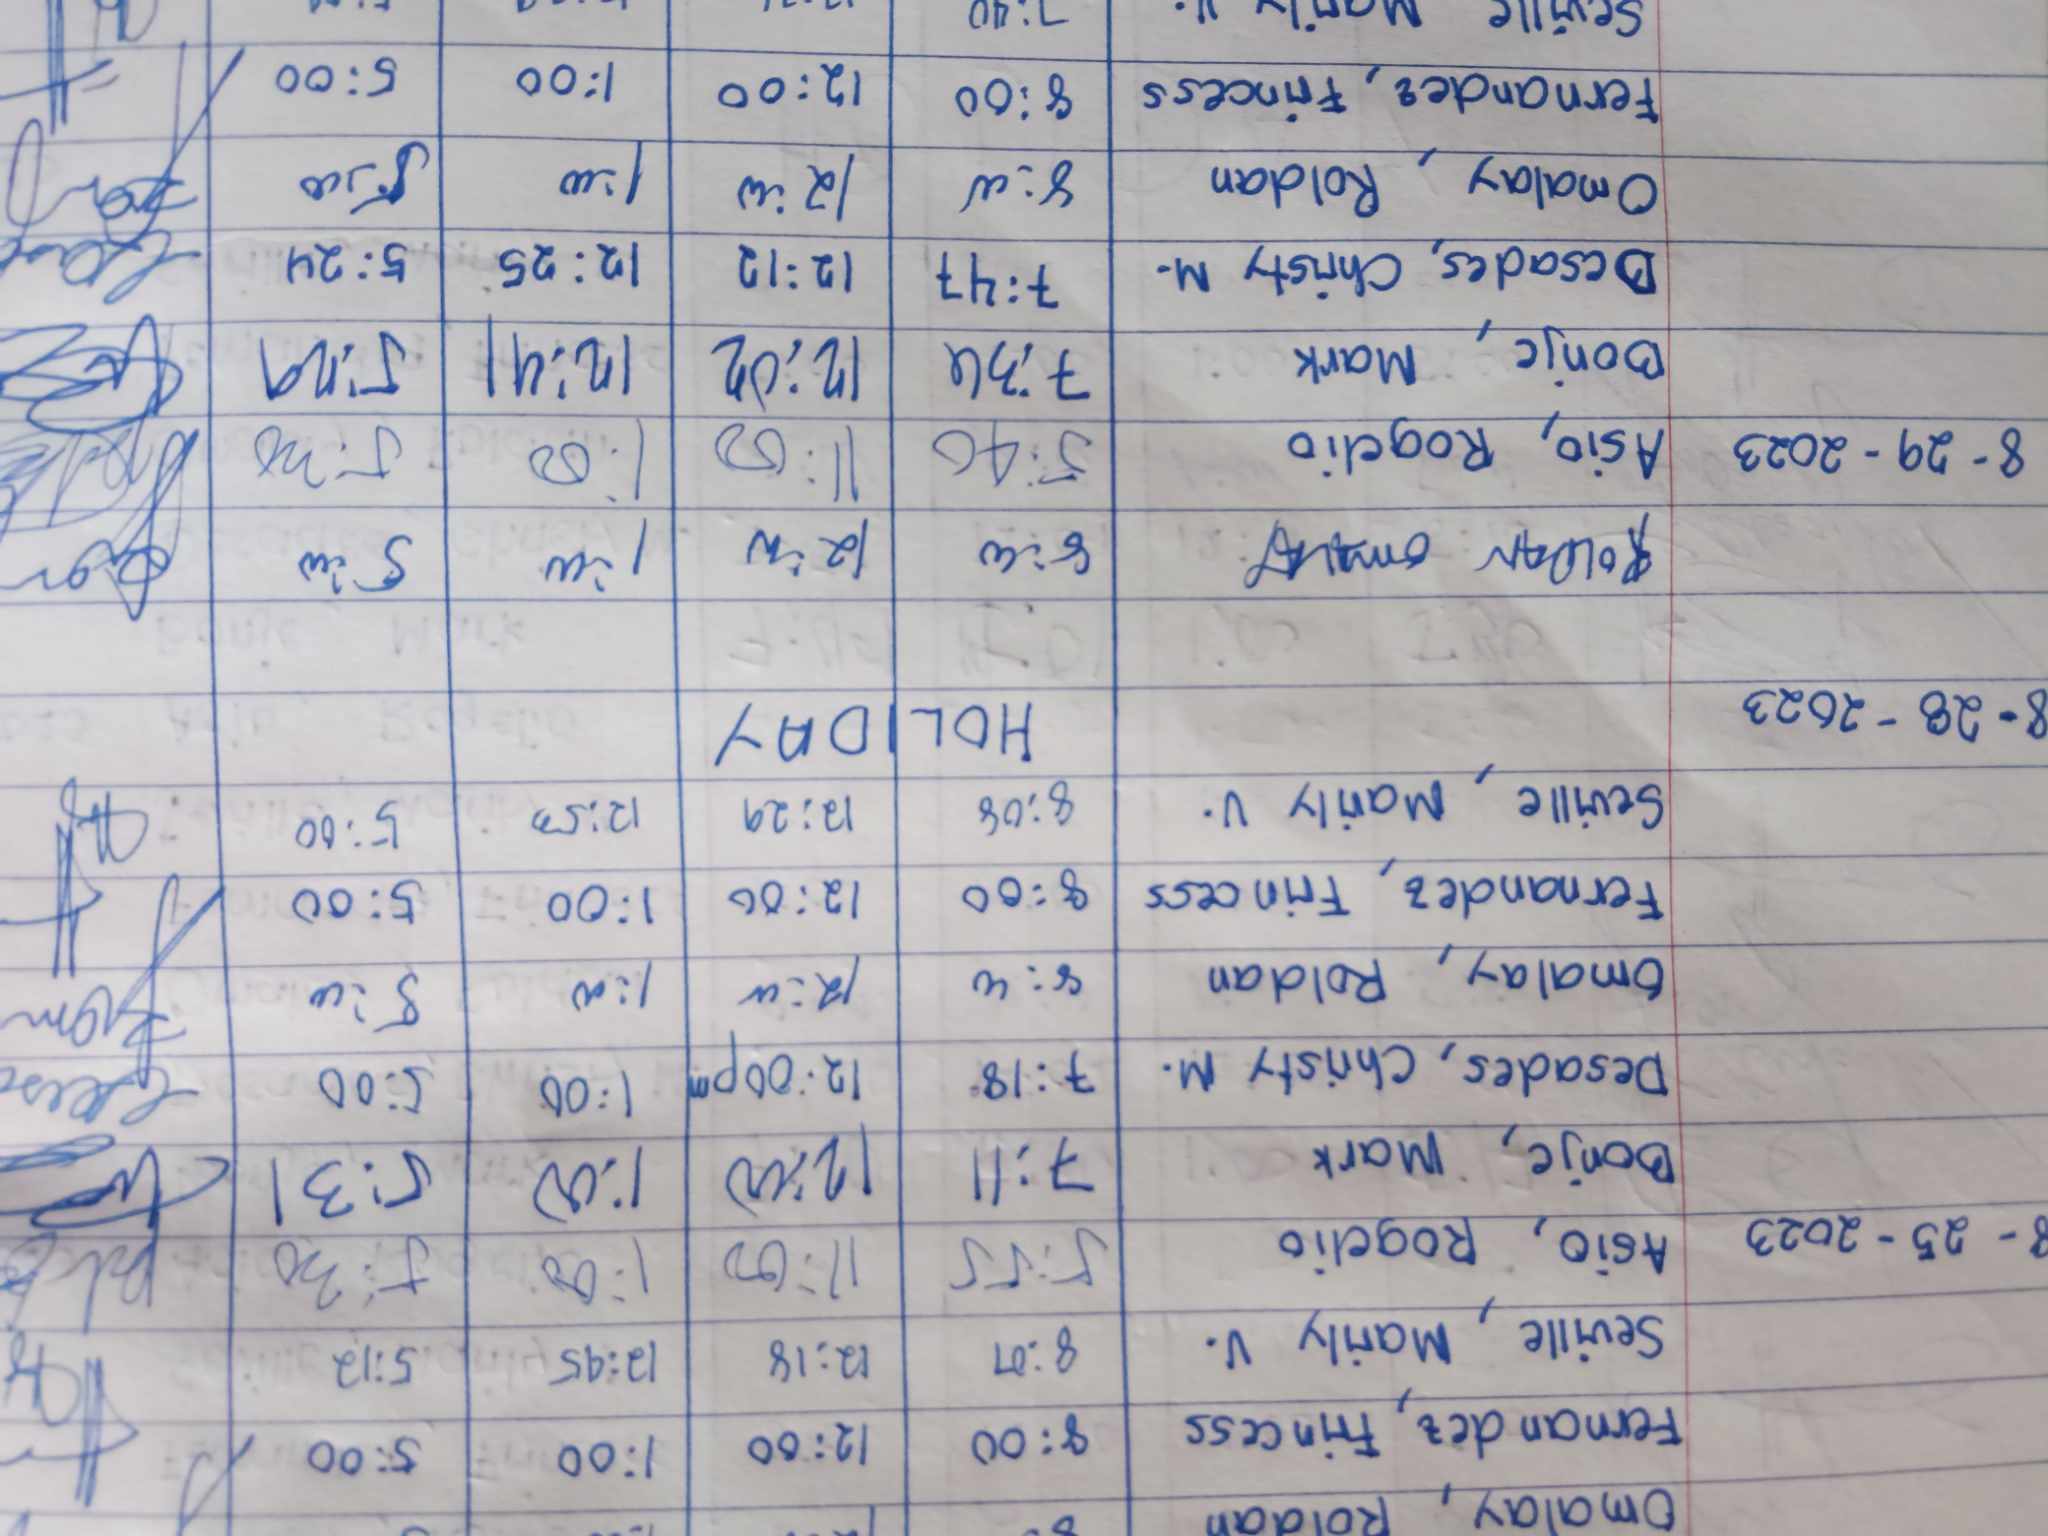 Omalay, Roldan
Fernandez, Princess 8:00 12:00 1:00 5:00
Seville, Marily V. 8:07 12:18 12:45 5:12
8-25-2023 Asio, Rogelio 5:55 11:00 1:00 5:30
Bonje, Mark 7:11 12:00 1:00 5:31
Desades, Christy M. 7:18 12:00pm 1:00 5:00
Omalay, Roldan 8:00 12:00 1:00 5:00
Fernandez, Princess 8:00 12:00 1:00 5:00
Seville, Marily V. 8:08 12:29 12:53 5:00
8-28-2023 HOLIDAY
ROLDAN OMALAY 8:00 12:00 1:00 5:00
8-29-2023 Asio, Rogelio 5:40 11:00 1:00 5:30
Bonje, Mark 7:34 12:02 12:41 5:29
Desades, Christy M. 7:47 12:12 12:25 5:24
Omalay, Roldan 8:00 12:00 1:00 5:00
Fernandez, Princess 8:00 12:00 1:00 5:00
Seville Marily V. 7:40